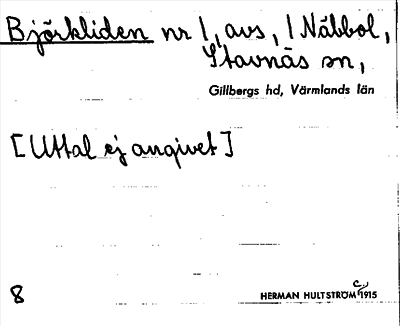 Björkliden nr 1, avs, 1 Näbbol,
Stavnäs sn,
Gillbergs hd, Värmlands län
[Uttal ej angivet]
8
HERMAN HULTSTRÖM c. 1915